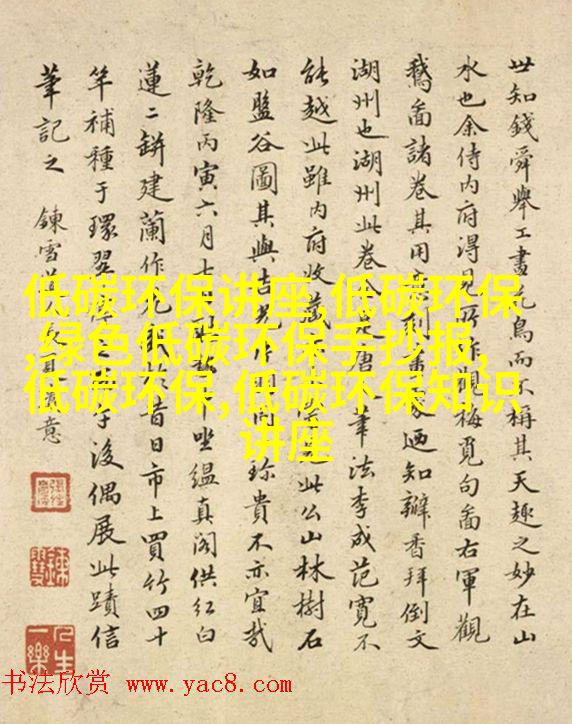 世知錢舜舉工畫花鳥而不稱其天趣之妙在山
水也余侍内府得見所作觀梅覓句畵右軍觀
鵝畵諸卷其用迺知瓣香拜倒文
湖州也湖州此卷唐筆法李成范寬不
能越此雖内府收藏此公山林樹石
如盤谷圖其與珍貴不亦宜哉
乾隆丙寅六月七坐緼真閣供紅白
蓮二缾建蘭作昔日市上買竹四十
竿補種于環翠後偶展此蹟信
筆記之 鍊雪道意
人生一樂
低碳环保讲座,低碳环保
,绿色低碳环保手抄报,
低碳环保,低碳环保知识
讲座
书法欣赏 www.yac8.com